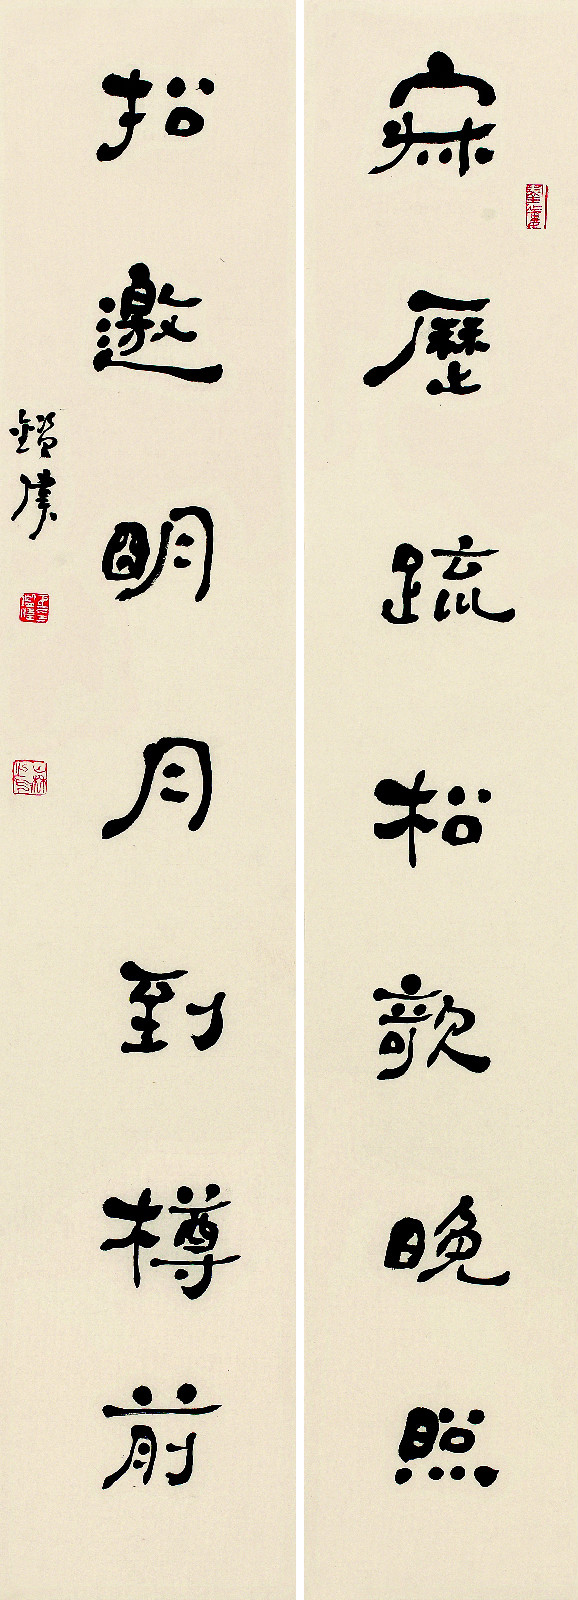 寂歷疏松欹晚照
招邀明月到樽前